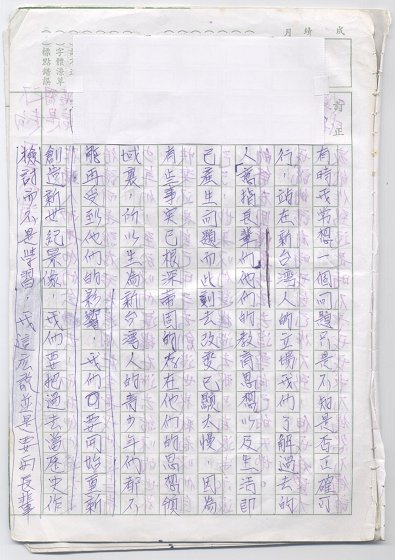 成績
月
有時我常想一個問題只是不知是否正確可
行，站在新台灣人的立場我們了解過去的
人舊指長輩們他們的教育思想以及生活即
已產生問題而此刻去改變已顯太慢，因為
有些事實已根深蒂固的存在他們的思想領
域裏，所以生為新台灣人的青少年們都不
能再受到他們的影響，我們可要開始重新
創造新世紀景像，我們要把過去當歷史作
檢討而不是學習，我這麼說並是要向長輩
( )字體潦草
( )標點錯誤